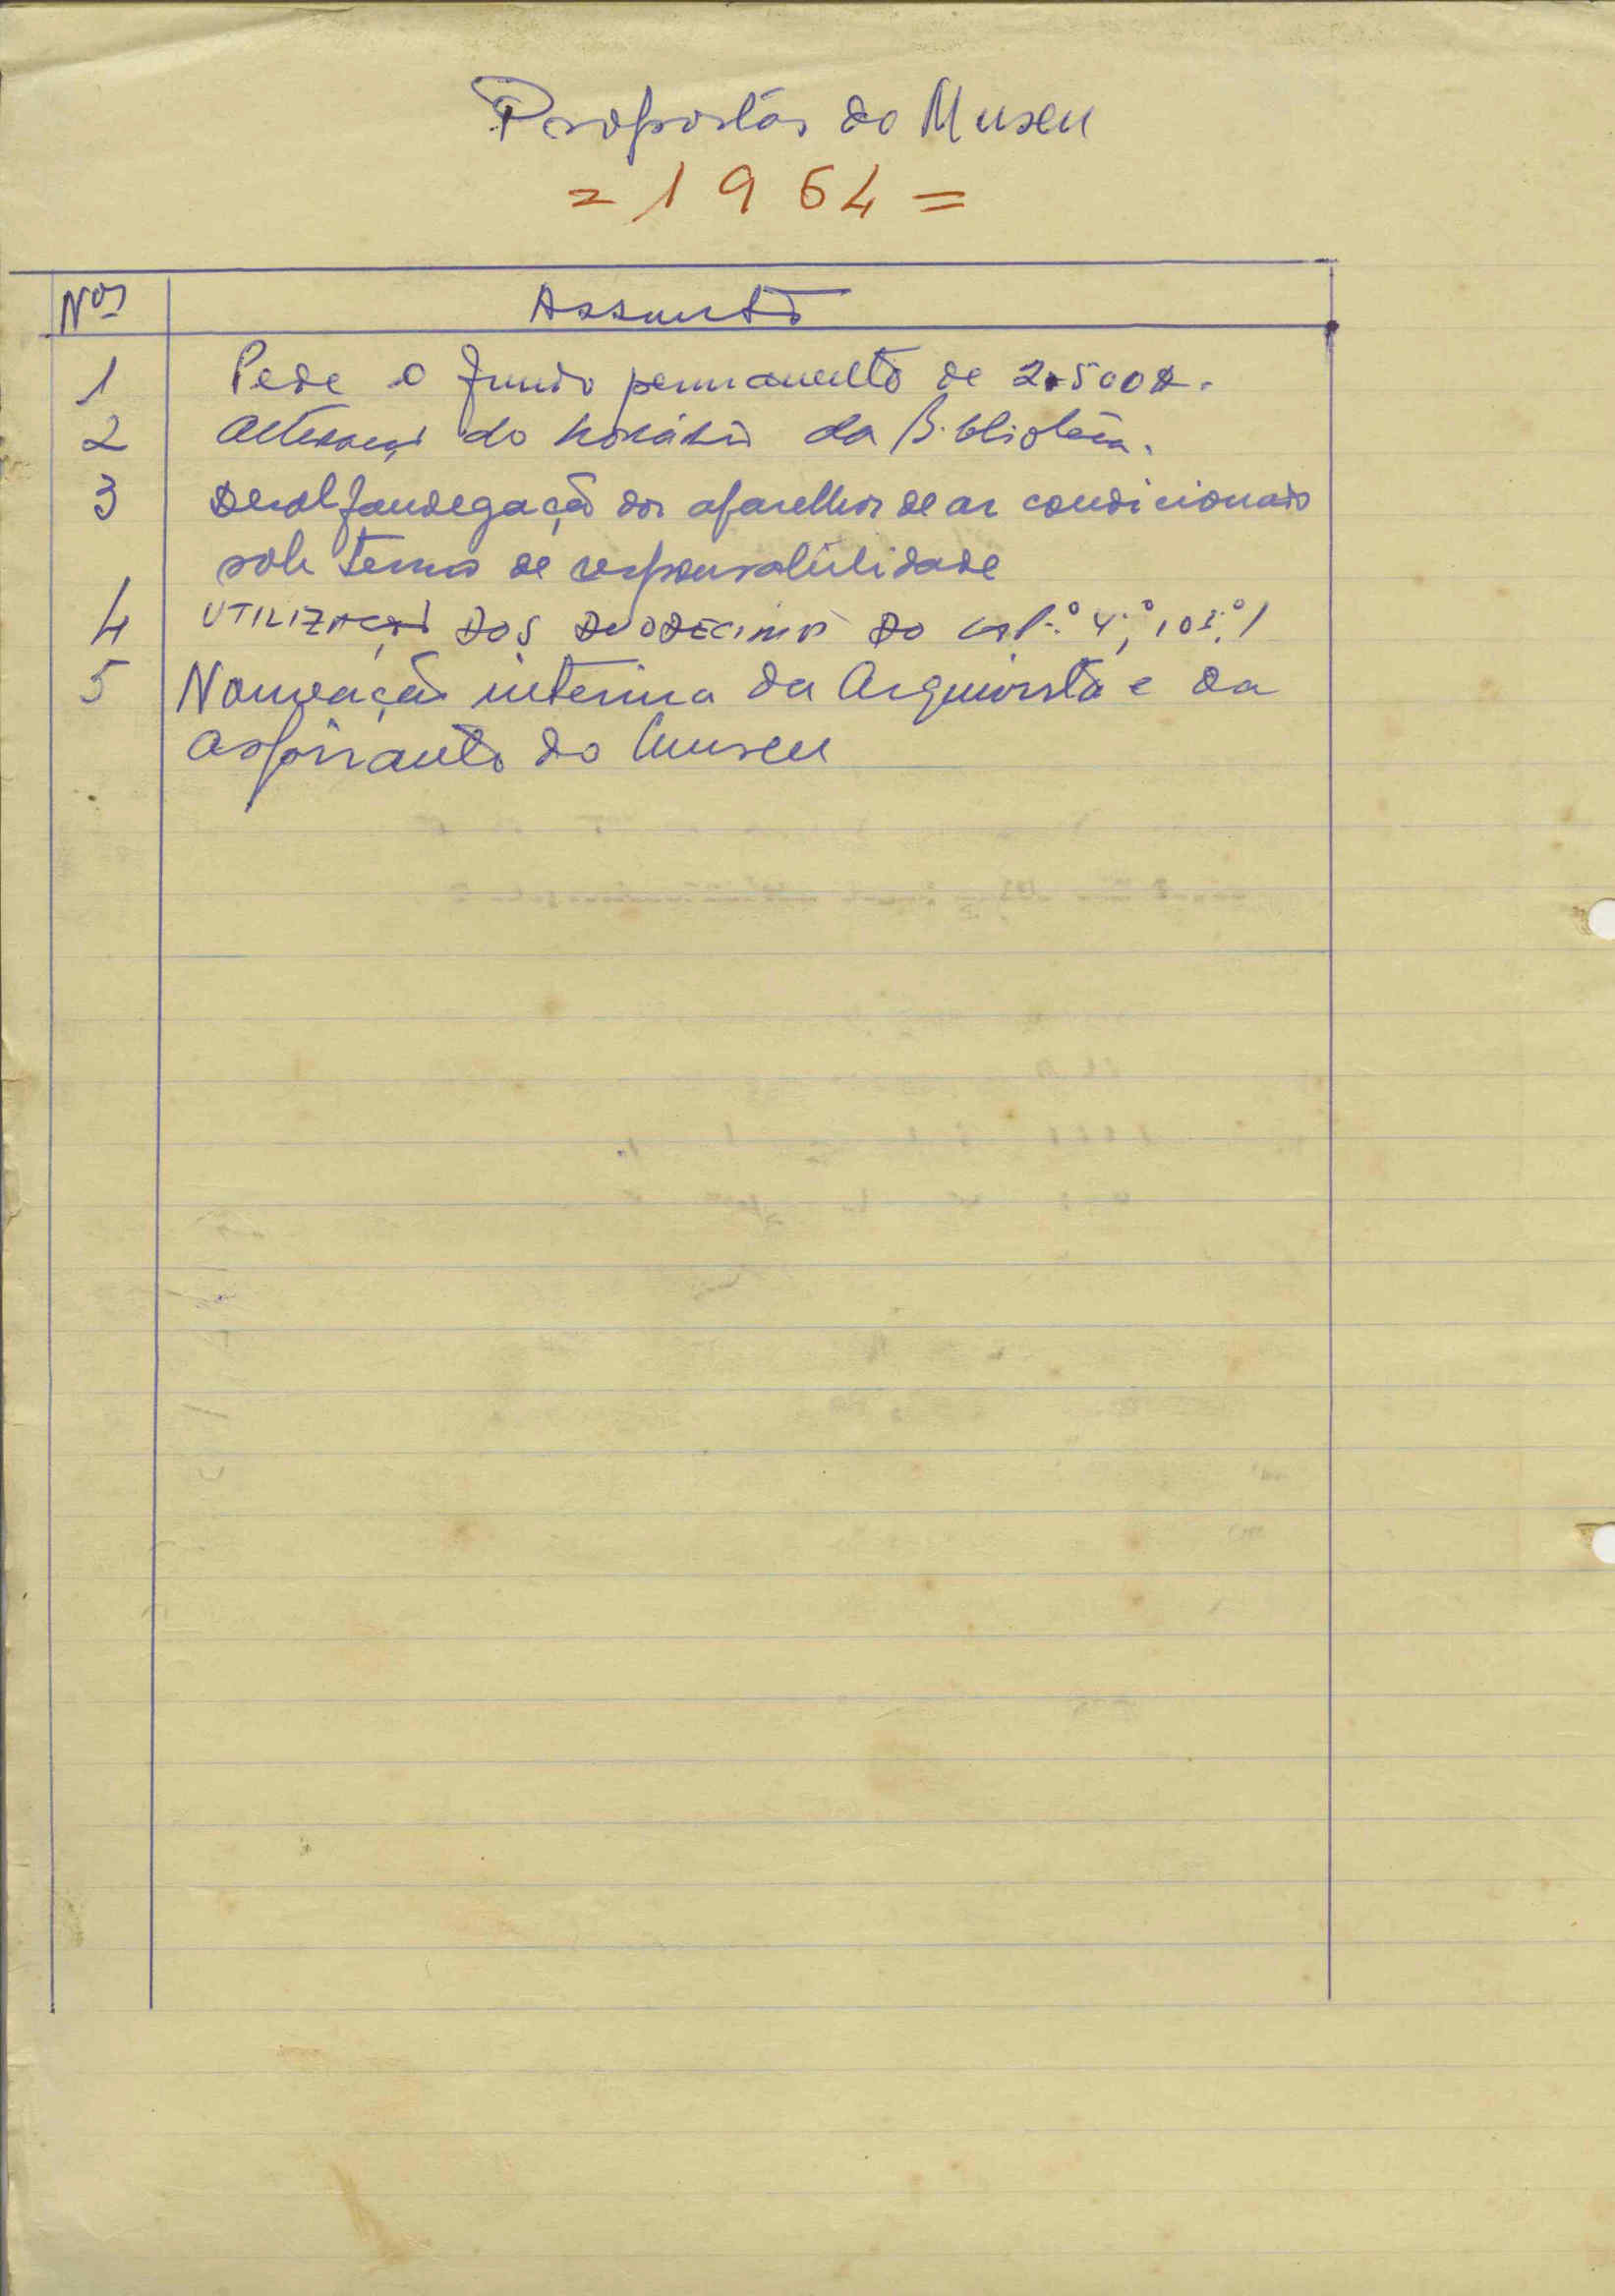 Propostas do Museu
= 1964 =
Nos Assunto
1 Pede o fundo permanente de 2.500$.
2 Alteração do horário da Biblioteca.
3 Desalfandegação dos aparelhos de ar condicionado
sob termo de responsabilidade
4 UTILIZAÇÃO DOS DUODECIMOS DO CAP.º 4º,
5 Nomeação interina da Arquivista e da
aspirante do Museu